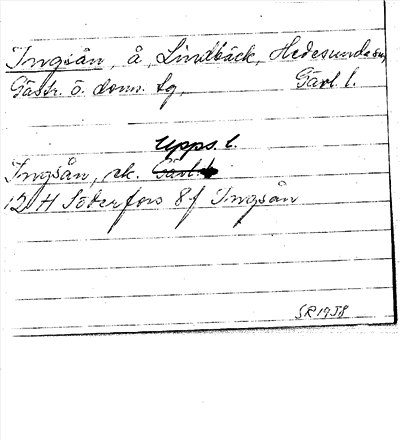 Ingsån, å, Lindbäck, Hedesunda sn,
Gästr. ö. doms. tg, Gävl. l.
Upps. l.
Ingsån, ek. Gävl. l.
12 H Söderfors 8 f Ingsån
SR 1958